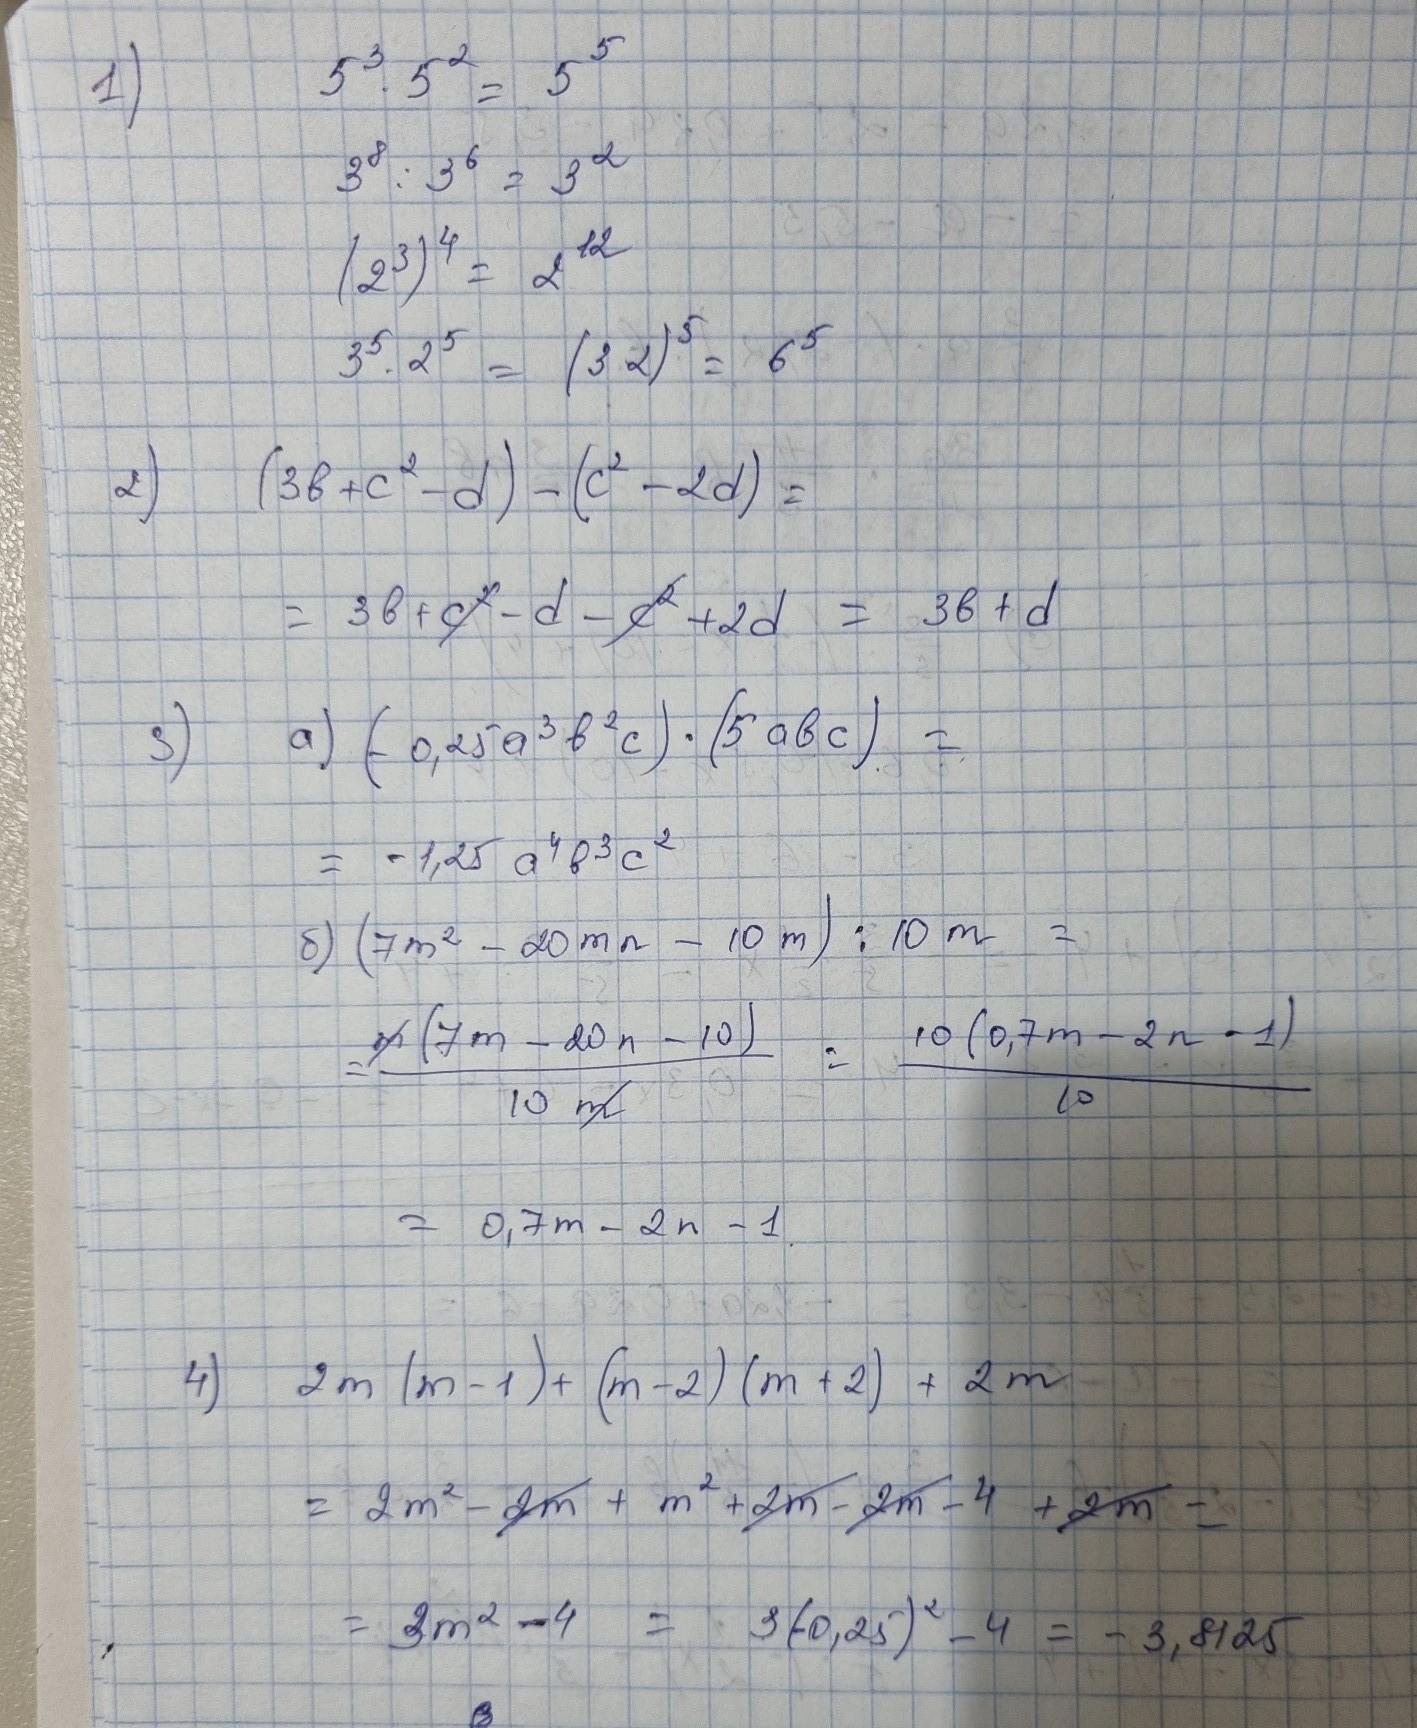 1) 5³ · 5² = 5⁵
3⁸ : 3⁶ = 3²
(2³)⁴ = 2¹²
3⁵ · 2⁵ = (3 2)⁵ = 6⁵
2) (3в + c² - d) - (c² - 2d) =
= 3в + c² - d - c² + 2d = 3в + d
3) а) (- 0,25a³в²c) · (5 aвc) =
= -1,25 a⁴в³c²
б) (7m² - 20mn - 10m) : 10m =
= m(7m - 20n - 10) / 10m = 10(0,7m - 2n - 1) / 10
= 0,7m - 2n - 1.
4) 2m (m - 1) + (m - 2) (m + 2) + 2m
= 2m² - 2m + m² + 2m - 2m - 4 + 2m =
= 3m² - 4 = 3(-0,25)² - 4 = -3,8125
в